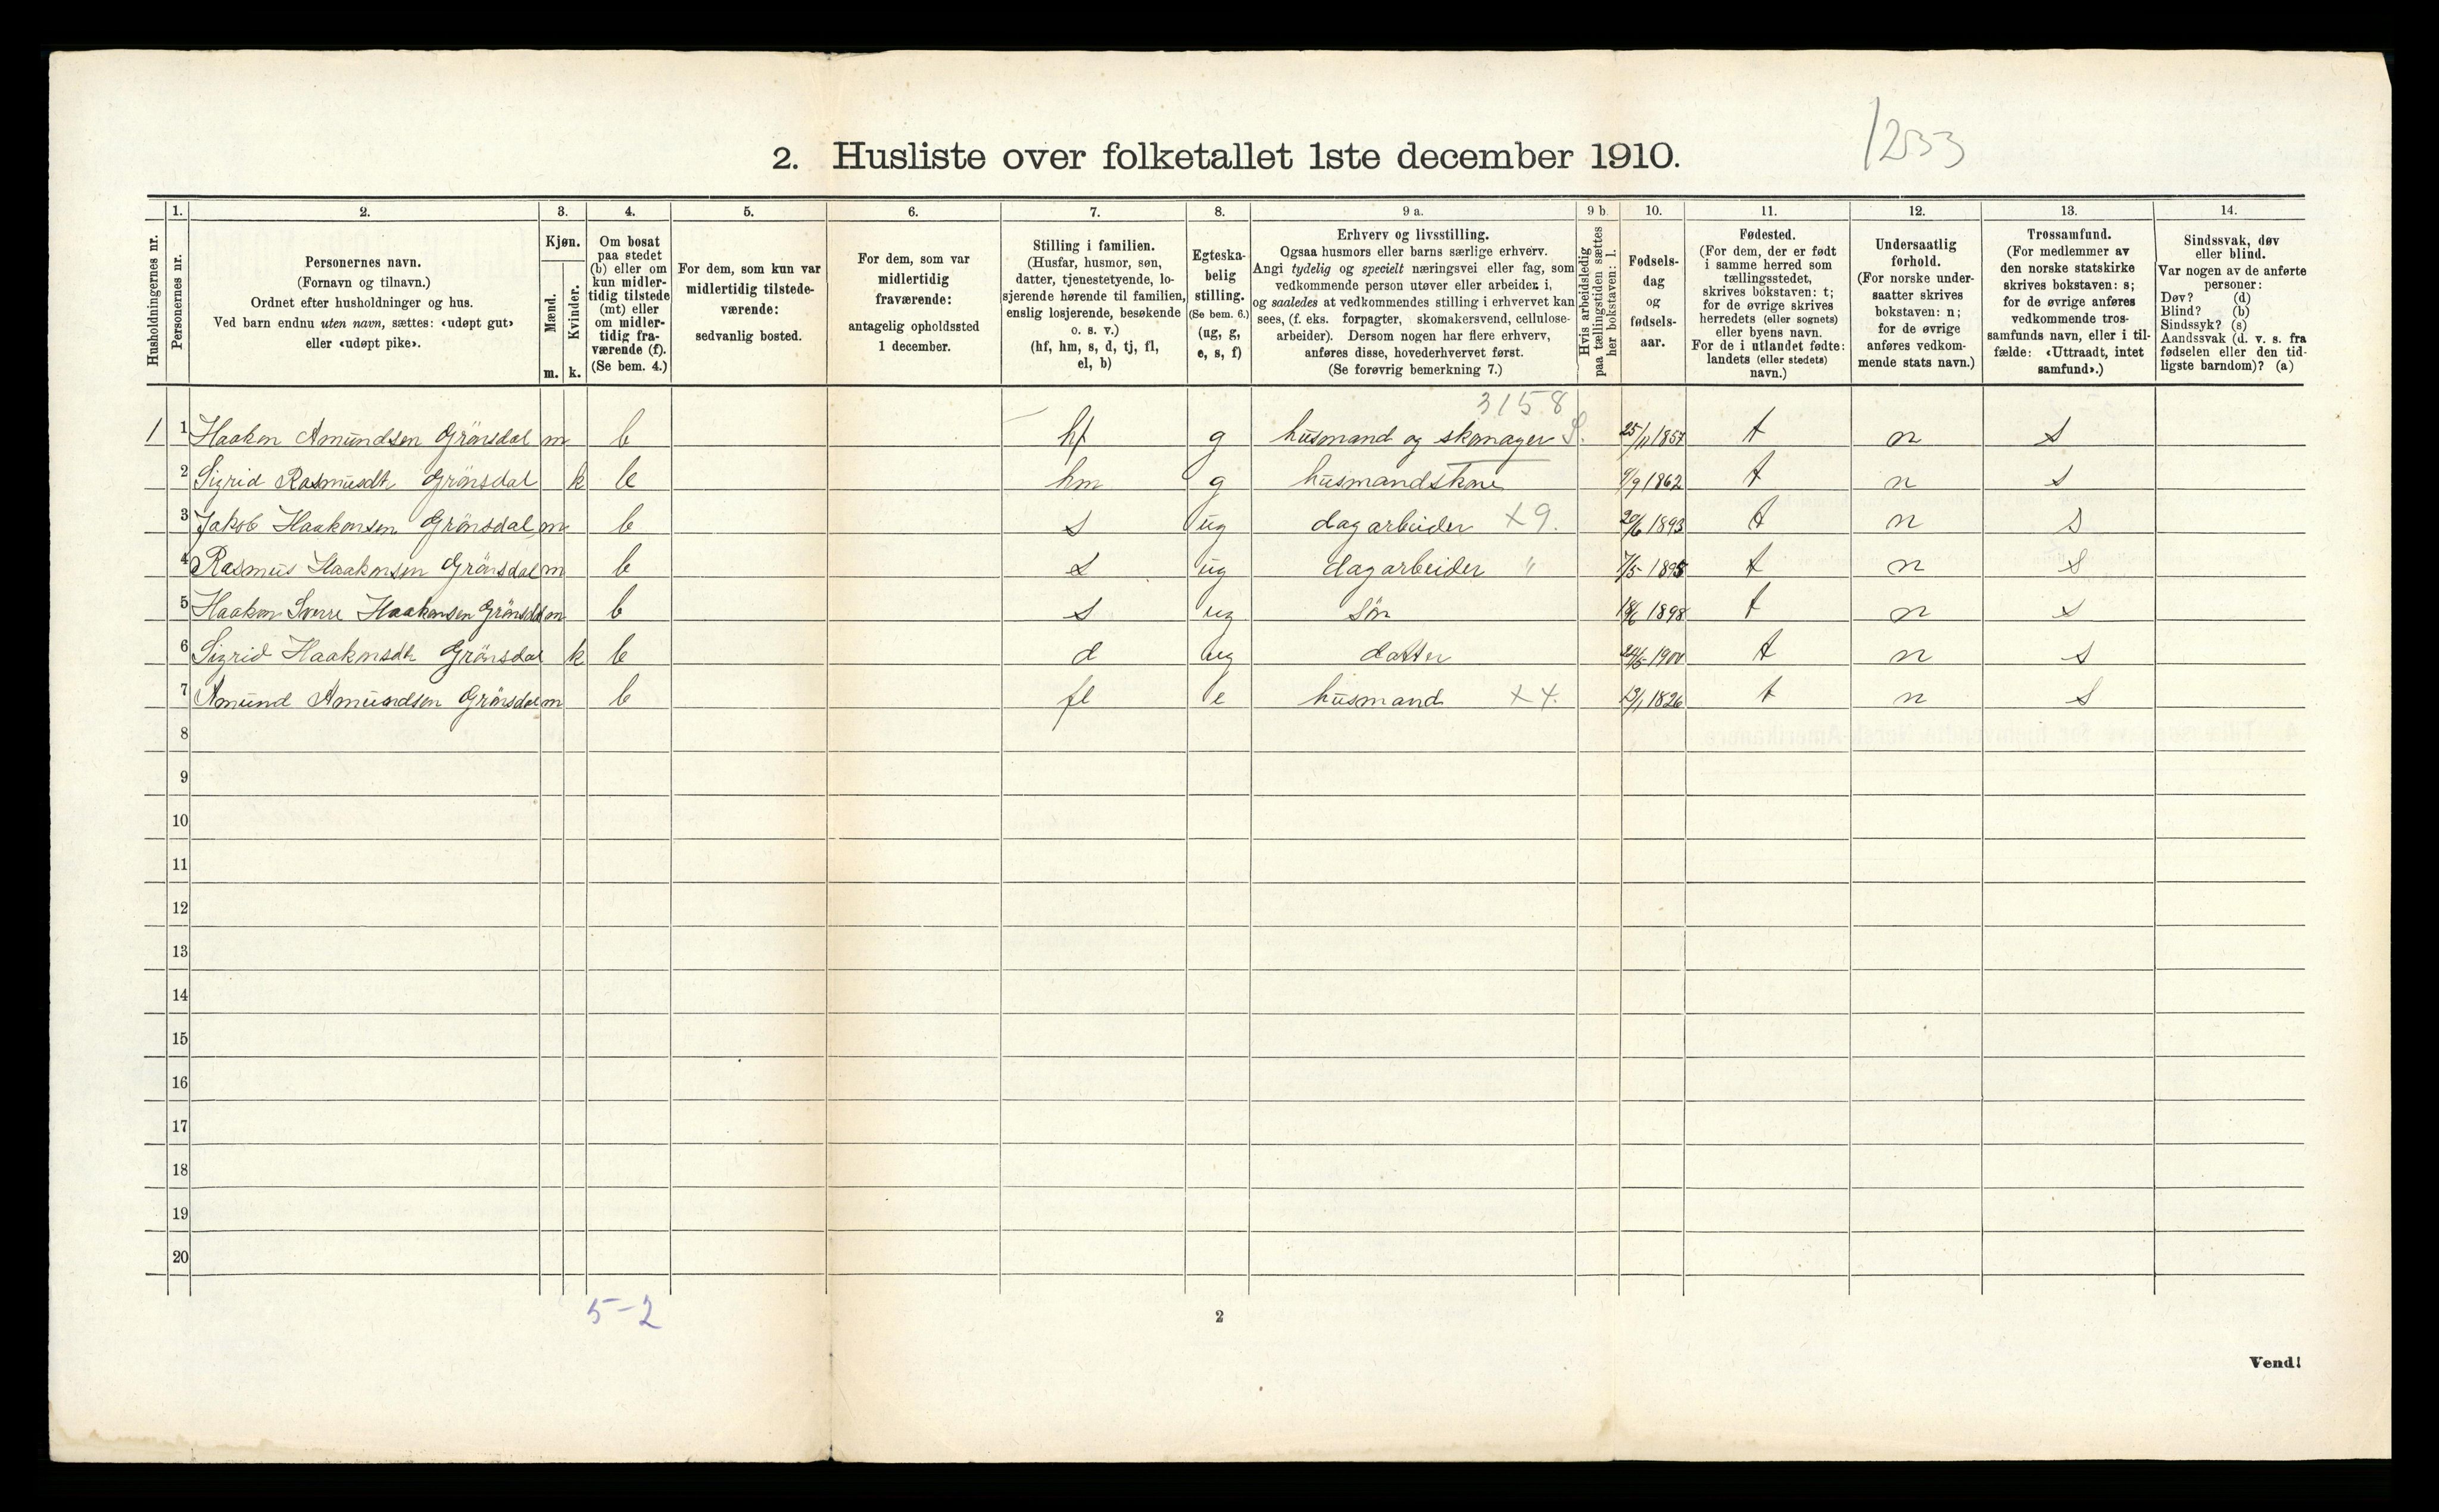 2. Husliste over folketallet 1ste december 1910.
1233
Husholdningernes nr.
1.
Personernes nr.
2.
Personernes navn.
(Fornavn og tilnavn.)
Ordnet efter husholdninger og hus.
Ved barn endnu uten navn, sættes: «udøpt gut»
eller «udøpt pike».
3.
Kjøn.
Mænd.
Kvinder.
m. k.
4.
Om bosat
paa stedet
(b) eller om
kun midler-
tidig tilstede
(mt) eller
om midler-
tidig fra-
værende (f).
(Se bem. 4.)
5.
For dem, som kun var
midlertidig tilstede-
værende:
sedvanlig bosted.
6.
For dem, som var
midlertidig
fraværende:
antagelig opholdssted
1 december.
7.
Stilling i familien.
(Husfar, husmor, søn,
datter, tjenestetyende, lo-
sjerende hørende til familien,
enslig losjerende, besøkende
o. s. v.)
(hf, hm, s, d, tj, fl,
el, b)
8.
Egteska-
belig
stilling.
(Se bem. 6.)
(ug, g,
e, s, f)
9 a.
Erhverv og livsstilling.
Ogsaa husmors eller barns særlige erhverv.
Angi tydelig og specielt næringsvei eller fag, som
vedkommende person utøver eller arbeider i,
og saaledes at vedkommendes stilling i erhvervet kan
sees, (f. eks. forpagter, skomakersvend, cellulose-
arbeider). Dersom nogen har flere erhverv,
anføres disse, hovederhvervet først.
(Se forøvrig bemerkning 7.)
9 b.
Hvis arbeidsledig
paa tællingstiden sættes
her bokstaven: l.
10.
Fødsels-
dag
og
fødsels-
aar.
11.
Fødested.
(For dem, der er født
i samme herred som
tællingsstedet,
skrives bokstaven: t;
for de øvrige skrives
herredets (eller sognets)
eller byens navn.
For de i utlandet fødte:
landets (eller stedets)
navn.)
12.
Undersaatlig
forhold.
(For norske under-
saatter skrives
bokstaven: n;
for de øvrige
anføres vedkom-
mende stats navn.)
13.
Trossamfund.
(For medlemmer av
den norske statskirke
skrives bokstaven: s;
for de øvrige anføres
vedkommende tros-
samfunds navn, eller i til-
fælde: «Uttraadt, intet
samfund».)
14.
Sindssvak, døv
eller blind.
Var nogen av de anførte
personer:
Døv? (d)
Blind? (b)
Sindssyk? (s)
Aandssvak (d. v. s. fra
fødselen eller den tid-
ligste barndom)? (a)
3158
1 1 Haakon Amundsen Grönsdal m b hf g husmand og skomager S. 25/11 1857 t n s
2 Sigrid Rasmusdtr Grönsdal k b hm g husmandskone /9 1862 t n s
3 Jakob Haakonsen Grönsdal m b s ug dagarbeider X9. 20/6 1893 t n s
4 Rasmus Haakonsen Grönsdal m b s ug dagarbeider " 7/5 1895 t n s
5 Haakon Sverre Haakonsen Grönsdal m b s ug Sön 18/6 1898 t n s
6 Sigrid Haakonsdtr Grönsdal k b d ug datter 24/5 1900 t n s
7 Amund Amundsen Grönsdal m b fl e husmand X4. 13/1 1826 t n s
8
9
10
11
12
13
14
15
16
17
18
19
20
5-2
2
Vend!